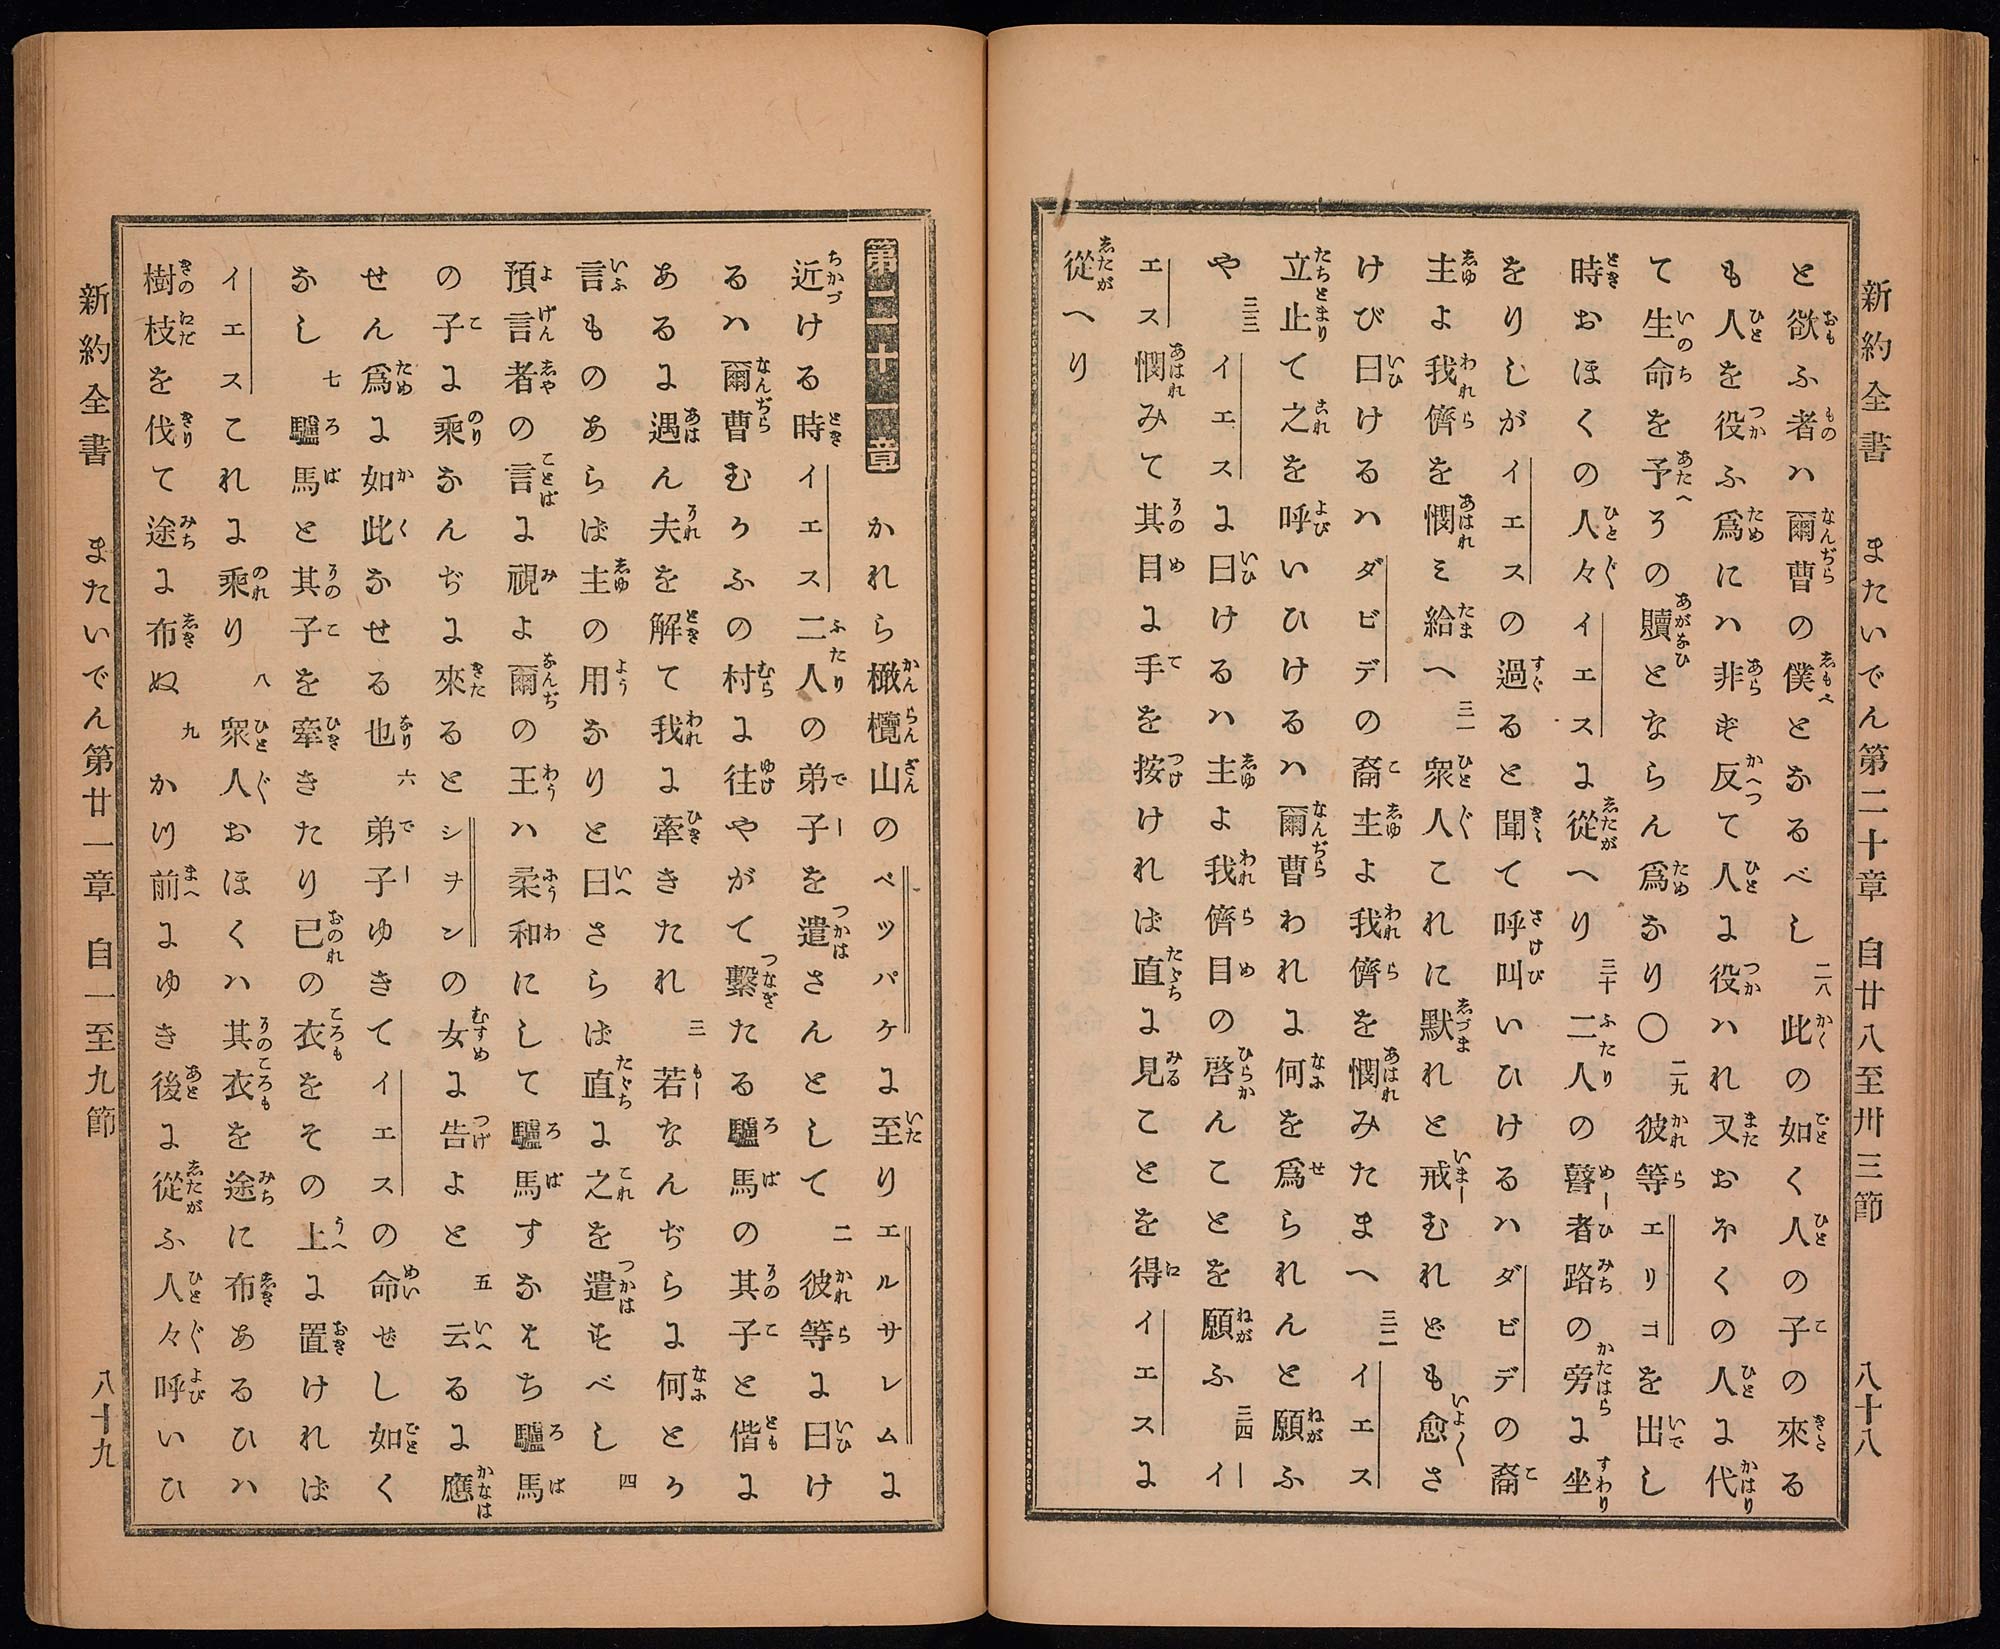 新約全書　またいでん第二十章　自廿八至卅三節　八十八
と欲ふ者ハ爾曹の僕となるべし 二八 此の如く人の子の來る
も人を役ふ爲にハ非ず反て人に役ハれ又おほくの人に代
て生命を予そのの贖とならん爲なり〇 二九 彼等エリコを出し
時おほくの人々イエスに從へり 三十 二人の瞽者路の旁に坐
をりしがイエスの過ると聞て呼叫いひけるハダビデの裔
主よ我儕を憫ミ給へ 三一 衆人これに默れと戒むれども愈さ
けび曰けるハダビデの裔主よ我儕を憫みたまへ 三二 イエス
立止て之を呼いひけるハ爾曹われに何を爲られんと願ふ
や 三三 イエスに曰けるハ主よ我儕目の啓んことを願ふ 三四 イ
エス憫みて其目に手を按けれバ直に見ことを得イエスに
從へり
第二十一章　かれら橄欖山のベツパゲに至りエルサレムに
近ける時イエス二人の弟子を遣さんとして 二 彼等に曰け
るハ爾曹むかふの村に往やがて繫たる驢馬の其子と偕に
あるに遇ん夫を解て我に牽きたれ 三 若なんぢらに何とか
言ものあらば主の用なりと曰さらば直に之を遣すべし 四
預言者の言に視よ爾の王ハ柔和にして驢馬すなはち驢馬
の子に乘なんぢに來るとシヲンの女に告よと 五 云るに應
せん爲に如此なせる也 六 弟子ゆきてイエスの命ぜし如く
なし 七 驢馬と其子を牽きたり已の衣をその上に置ければ
イエスこれに乘り 八 衆人おほくハ其衣を途に布あるひハ
樹枝を伐て途に布ぬ 九 かつ前にゆき後に從ふ人々呼いひ
新約全書　またいでん第廿一章　自一至九節　八十九